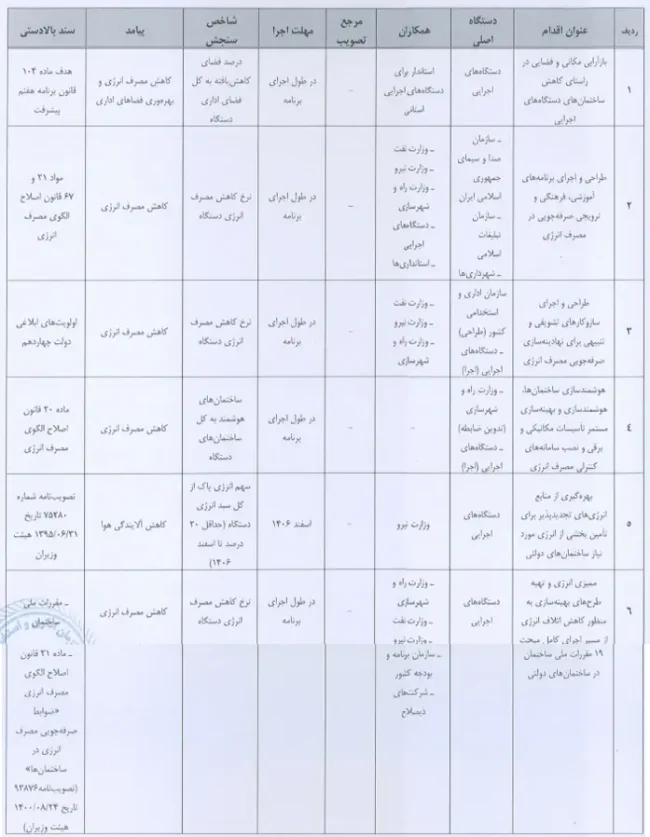 ردیف
عنوان اقدام
دستگاه
اصلی
همکاران
مرجع
تصویب
مهلت اجرا
شاخص
سنجش
پیامد
سند بالادستی
۱
بازآرایی مکانی و فضایی در
راستای کاهش
ساختمان‌های دستگاه‌های
اجرایی
دستگاه‌های
اجرایی
استاندار برای
دستگاه‌های اجرایی
استانی
-
در طول اجرای
برنامه
درصد فضای
کاهش‌یافته به کل
فضای اداری
دستگاه
کاهش مصرف انرژی و
بهره‌وری فضاهای اداری
هدف ماده ۱۰۴
قانون برنامه هفتم
پیشرفت
۲
طراحی و اجرای برنامه‌های
آموزشی، فرهنگی و
ترویجی صرفه‌جویی در
مصرف انرژی
ـ سازمان
صدا و سیمای
جمهوری
اسلامی ایران
ـ سازمان
تبلیغات
اسلامی
ـ شهرداری‌ها
ـ وزارت نفت
ـ وزارت نیرو
ـ وزارت راه و
شهرسازی
ـ دستگاه‌های
اجرایی
ـ استانداری‌ها
-
در طول اجرای
برنامه
نرخ کاهش مصرف
انرژی دستگاه
کاهش مصرف انرژی
مواد ۲۱ و
۶۷ قانون اصلاح
الگوی مصرف
انرژی
۳
طراحی و اجرای
سازوکارهای تشویقی و
تنبیهی برای نهادینه‌سازی
صرفه‌جویی مصرف انرژی
سازمان اداری و
استخدامی
کشور (طراحی)
ـ دستگاه‌های
اجرایی (اجرا)
ـ وزارت نفت
ـ وزارت نیرو
ـ وزارت راه و
شهرسازی
-
در طول اجرای
برنامه
نرخ کاهش مصرف
انرژی دستگاه
کاهش مصرف انرژی
اولویت‌های ابلاغی
دولت چهاردهم
۴
هوشمندسازی ساختمان‌ها،
هوشمندسازی و بهینه‌سازی
مستمر تاسیسات مکانیکی و
برقی و نصب سامانه‌های
کنترلی مصرف انرژی
ـ وزارت راه و
شهرسازی
(تدوین ضابطه)
ـ دستگاه‌های
اجرایی (اجرا)
-
-
در طول اجرای
برنامه
ساختمان‌های
هوشمند به کل
ساختمان‌های
دستگاه
کاهش مصرف انرژی
ماده ۲۰ قانون
اصلاح الگوی
مصرف انرژی
۵
بهره‌گیری از منابع
انرژی‌های تجدیدپذیر برای
تأمین بخشی از انرژی مورد
نیاز ساختمان‌های دولتی
دستگاه‌های
اجرایی
وزارت نیرو
-
اسفند ۱۴۰۶
سهم انرژی پاک از
کل سبد انرژی
دستگاه (حداقل ۲۰
درصد تا اسفند
۱۴۰۶)
کاهش آلایندگی هوا
تصویب‌نامه شماره
۷۵۲۸۰ تاریخ
۱۳۹۵/۰۶/۳۱ هیئت
وزیران
۶
ممیزی انرژی و تهیه
طرح‌های بهینه‌سازی به
منظور کاهش اتلاف انرژی
از مسیر اجرای کامل مبحث
۱۹ مقررات ملی ساختمان
در ساختمان‌های دولتی
دستگاه‌های
اجرایی
ـ وزارت راه و
شهرسازی
ـ وزارت نفت
ـ وزارت نیرو
ـ سازمان برنامه و
بودجه کشور
ـ شرکت‌های
ذیصلاح
-
در طول اجرای
برنامه
نرخ کاهش مصرف
انرژی دستگاه
کاهش مصرف انرژی
ـ مقررات ملی
ساختمان
ـ ماده ۲۱ قانون
اصلاح الگوی
مصرف انرژی
«ضوابط
صرفه‌جویی مصرف
انرژی در
ساختمان‌ها»
(تصویب‌نامه ۹۳۸۷۶
تاریخ ۱۴۰۰/۰۸/۲۴
هیئت وزیران)